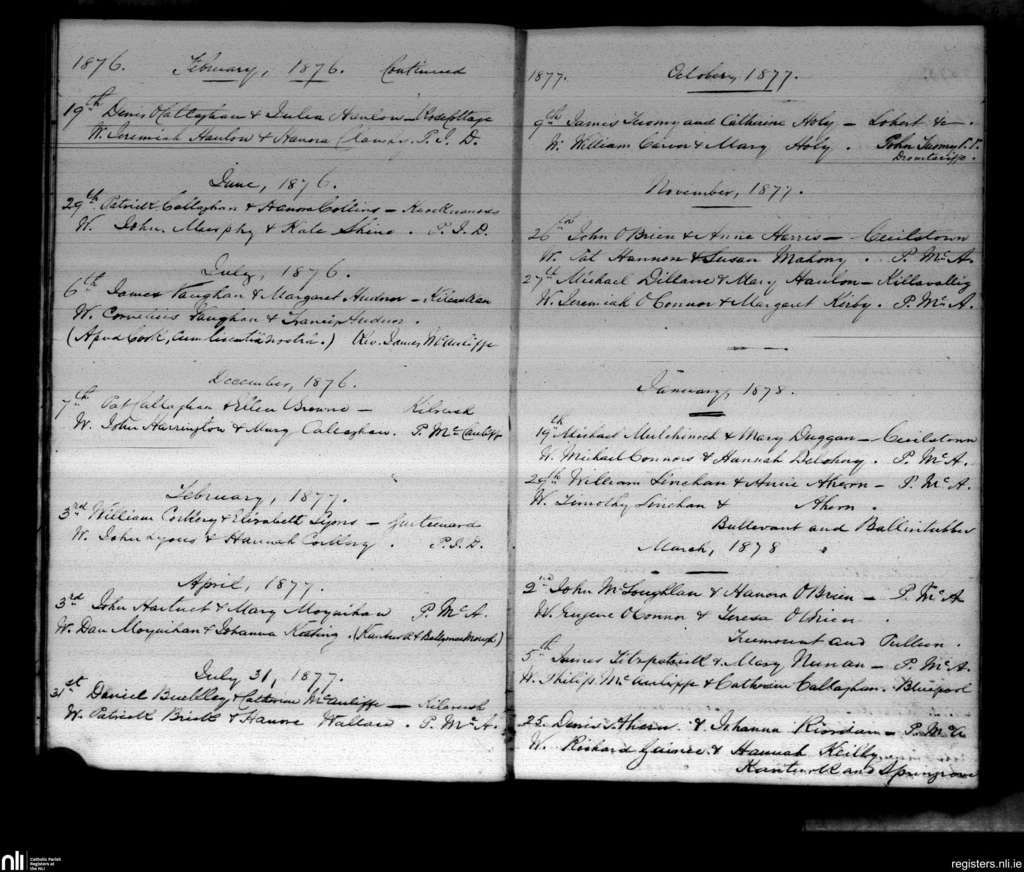 1876. February, 1876. Continued
19th Denis O'Callaghan & Julia Hanlon — Rosecottage
W. Jeremiah Hanlon & Hanora P.J.D.
June, 1876.
29th Patrick Callaghan & Hanora Collins —
W. John Murphy & Kate Shine. P.J.D.
July, 1876.
6th James Vaughan & Margaret —
W. Cornelius Vaughan & Francis
(Apud Cork, cum licentia nostra.) Rev. James McAuliffe
December, 1876.
7th Pat Callaghan & Ellen Browne — Kilbrack
W. John Harrington & Mary Callaghan. P. McCauliffe
February, 1877.
3rd William Corkery & Elizabeth Lyons —
W. John Lyons & Hannah Corkery. P.J.D.
April, 1877.
3rd John Hartnet & Mary Moynihan P. McA.
W. Dan Moynihan & Johanna Keating. (Kanturk &
July 31, 1877.
31st Daniel Buckley & Catherine McAuliffe —
W. Patrick & Hanora Wallace. P. McA.
1877. October, 1877.
9th James Twomy and Catherine Holy — Lohort &c —
W. William Carver & Mary Holy. John Twomy P.P.
Dromtariffe.
November, 1877.
26th John O'Brien & Anne Harris — Cecilstown
W. Pat Hannon & Susan Mahony. P. McA.
27th Michael Dillane & Mary Hanlon — Killavallig
W. Jeremiah O'Connor & Margaret Kirby. P. McA.
January, 1878.
19th Michael Mulchinock & Mary Duggan — Cecilstown
W. Michael Connors & Hannah Delohery. P. McA.
29th William Linehan & Annie Ahern — P. McA.
W. Timothy Linehan & Ahern.
Buttevant and Ballintubber
March, 1878
2nd John McLoughlan & Hanora O'Brien — P. McA
W. Eugene O'Connor & Teresa O'Brien.
Fremount and Pulleen.
5th James Fitzpatrick & Mary Nunan — P. McA.
W. Philip McAuliffe & Catherine Callaghan. Bluepool
25. Denis Ahern & Johanna Riordan — P. McA
W. Richard Guinee & Hannah Reilly
Kanturk and Springrove
nli Catholic Parish
Registers at
the NLI
registers.nli.ie